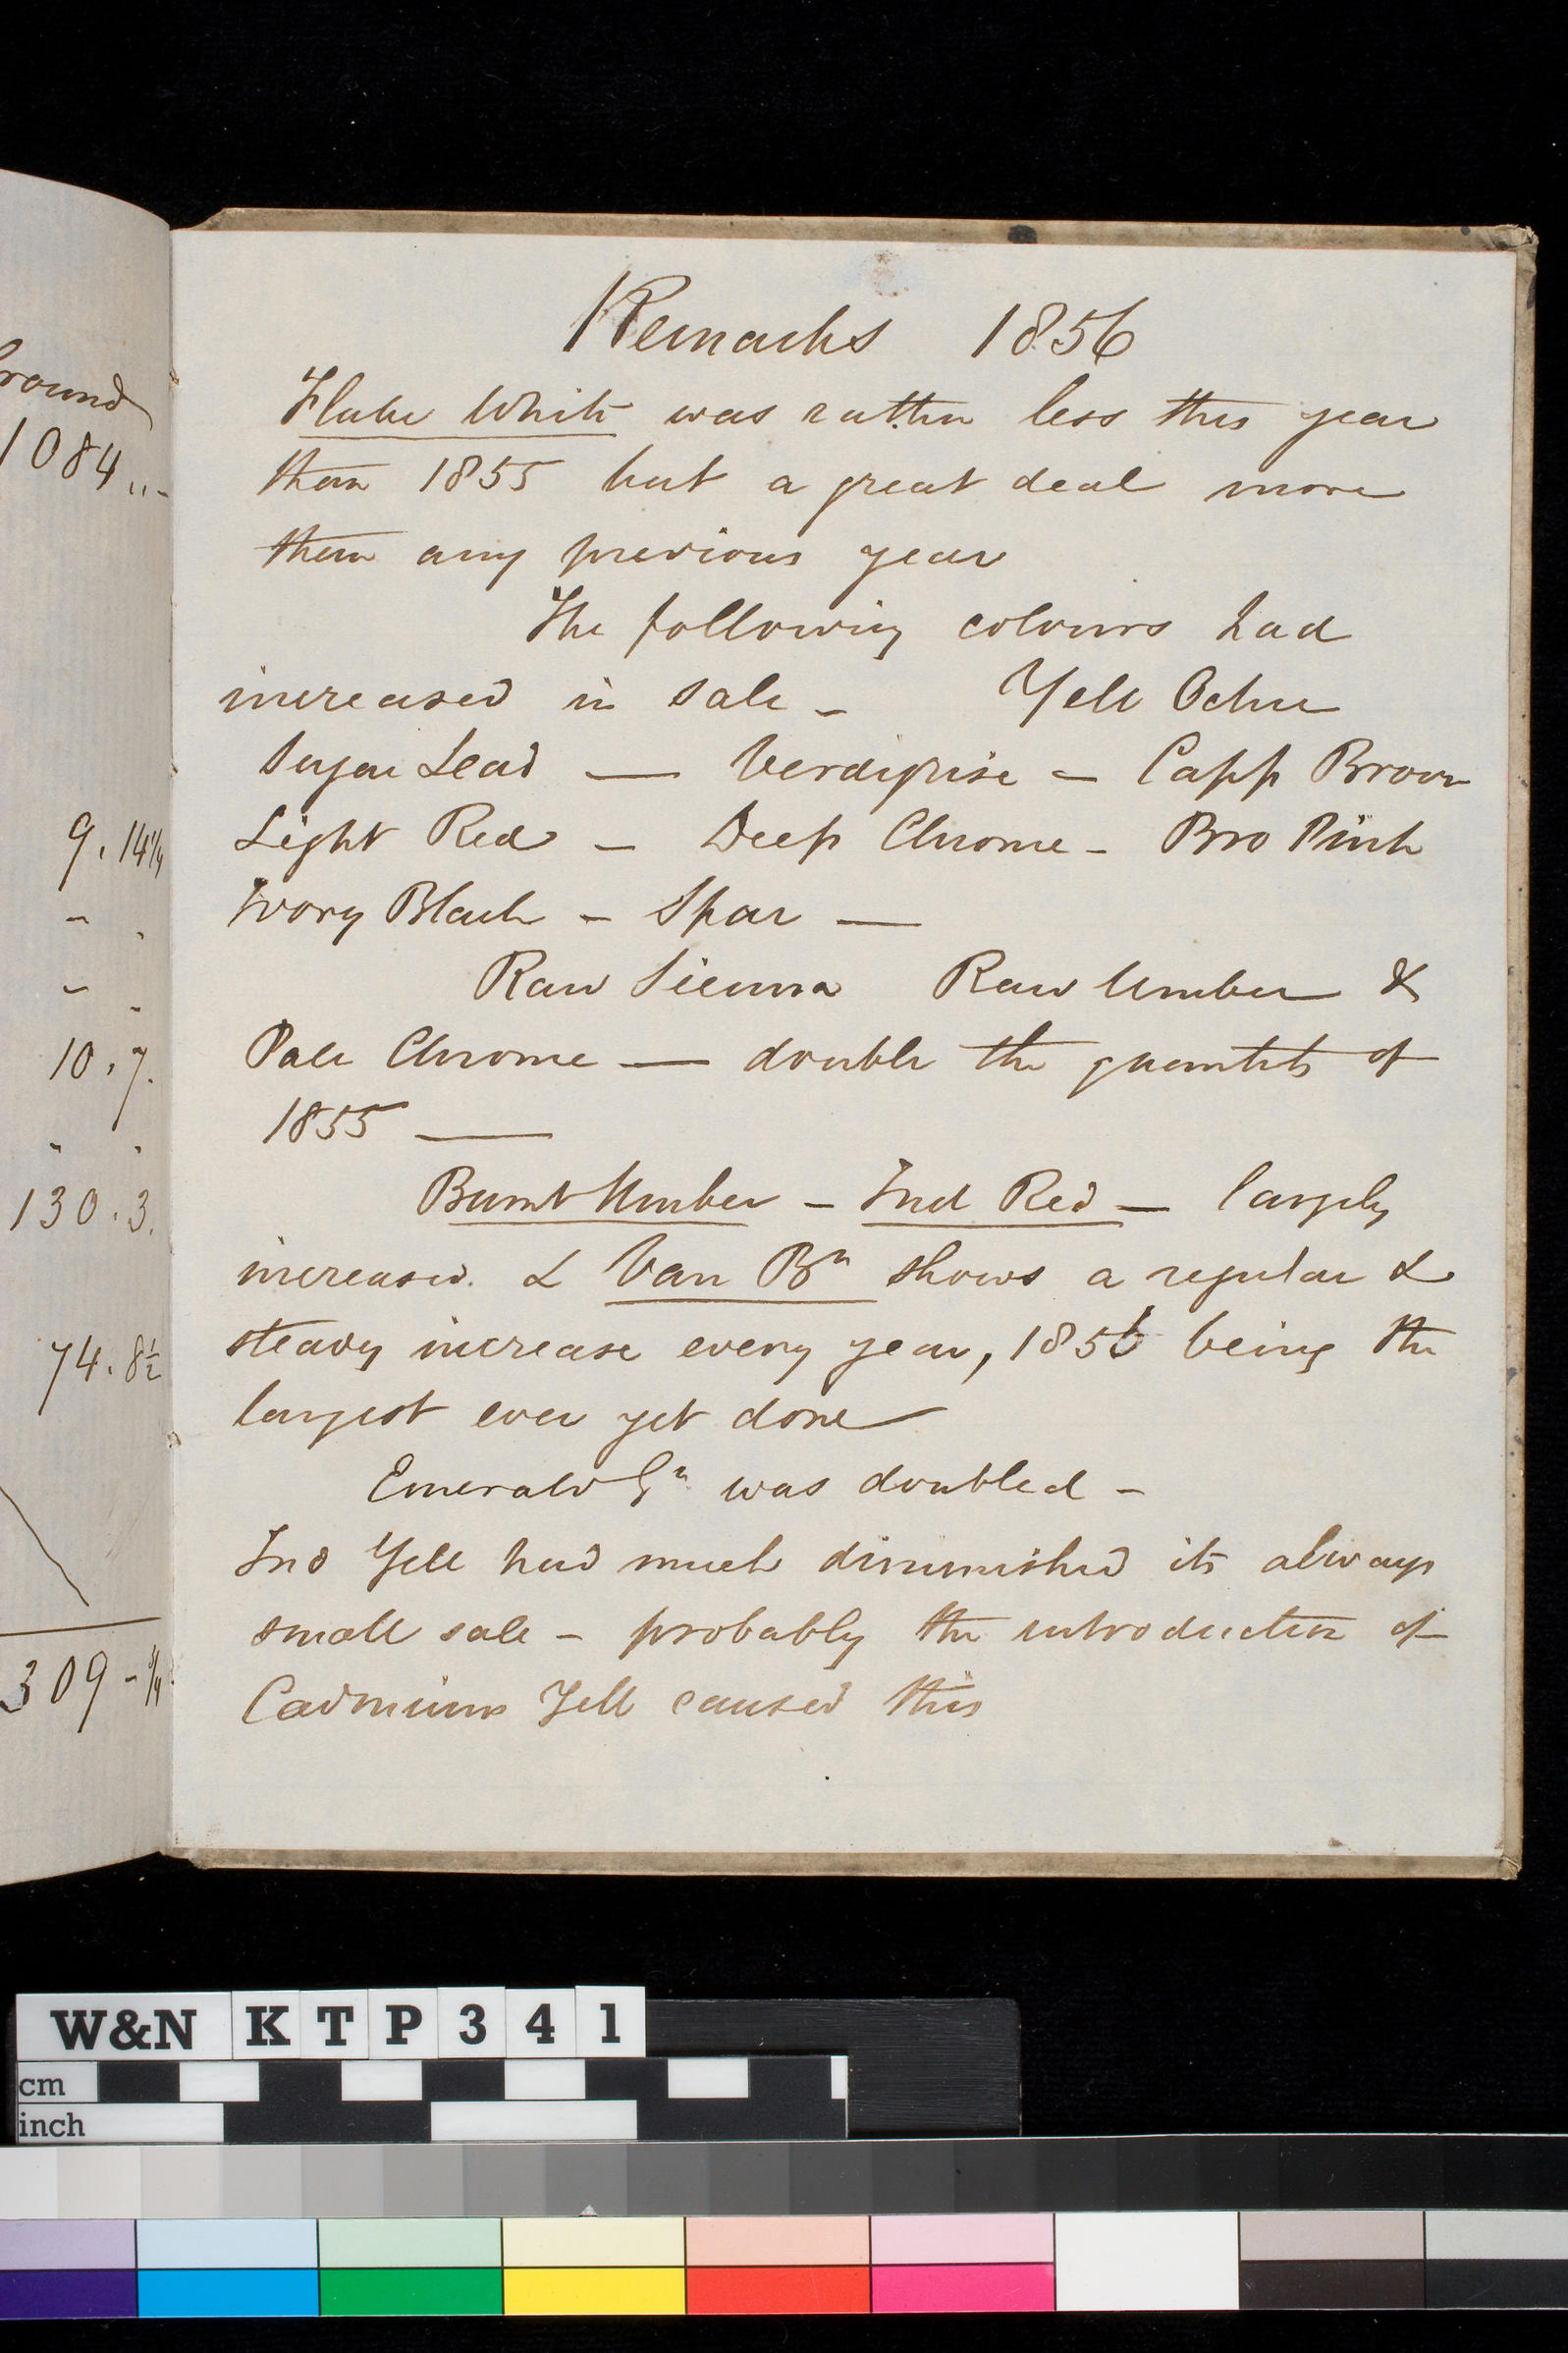 round
1084 " -
9. 14 1/4
10. 7.
130. 3.
74. 8 1/2
309 - 3/4
Remarks 1856
Flake White was rather less this year
than 1855 but a great deal more
than any previous year
The following colours had
increased in sale - Yell Ochre
Sugar Lead — Verdigrise - Capp Brown
Light Red - Deep Chrome - Bro Pink
Ivory Black - Spar —
Raw Sienna Raw Umber &
Pale Chrome — double the quantity of
1855 —
Burnt Umber - Ind Red - largely
increased. & Van Bn shows a regular &
steady increase every year, 1856 being the
largest ever yet done
Emerald Gn was doubled -
Ind Yell had much diminished its always
small sale - probably the introduction of
Cadmium Yell caused this
W&N KTP341
cm
inch